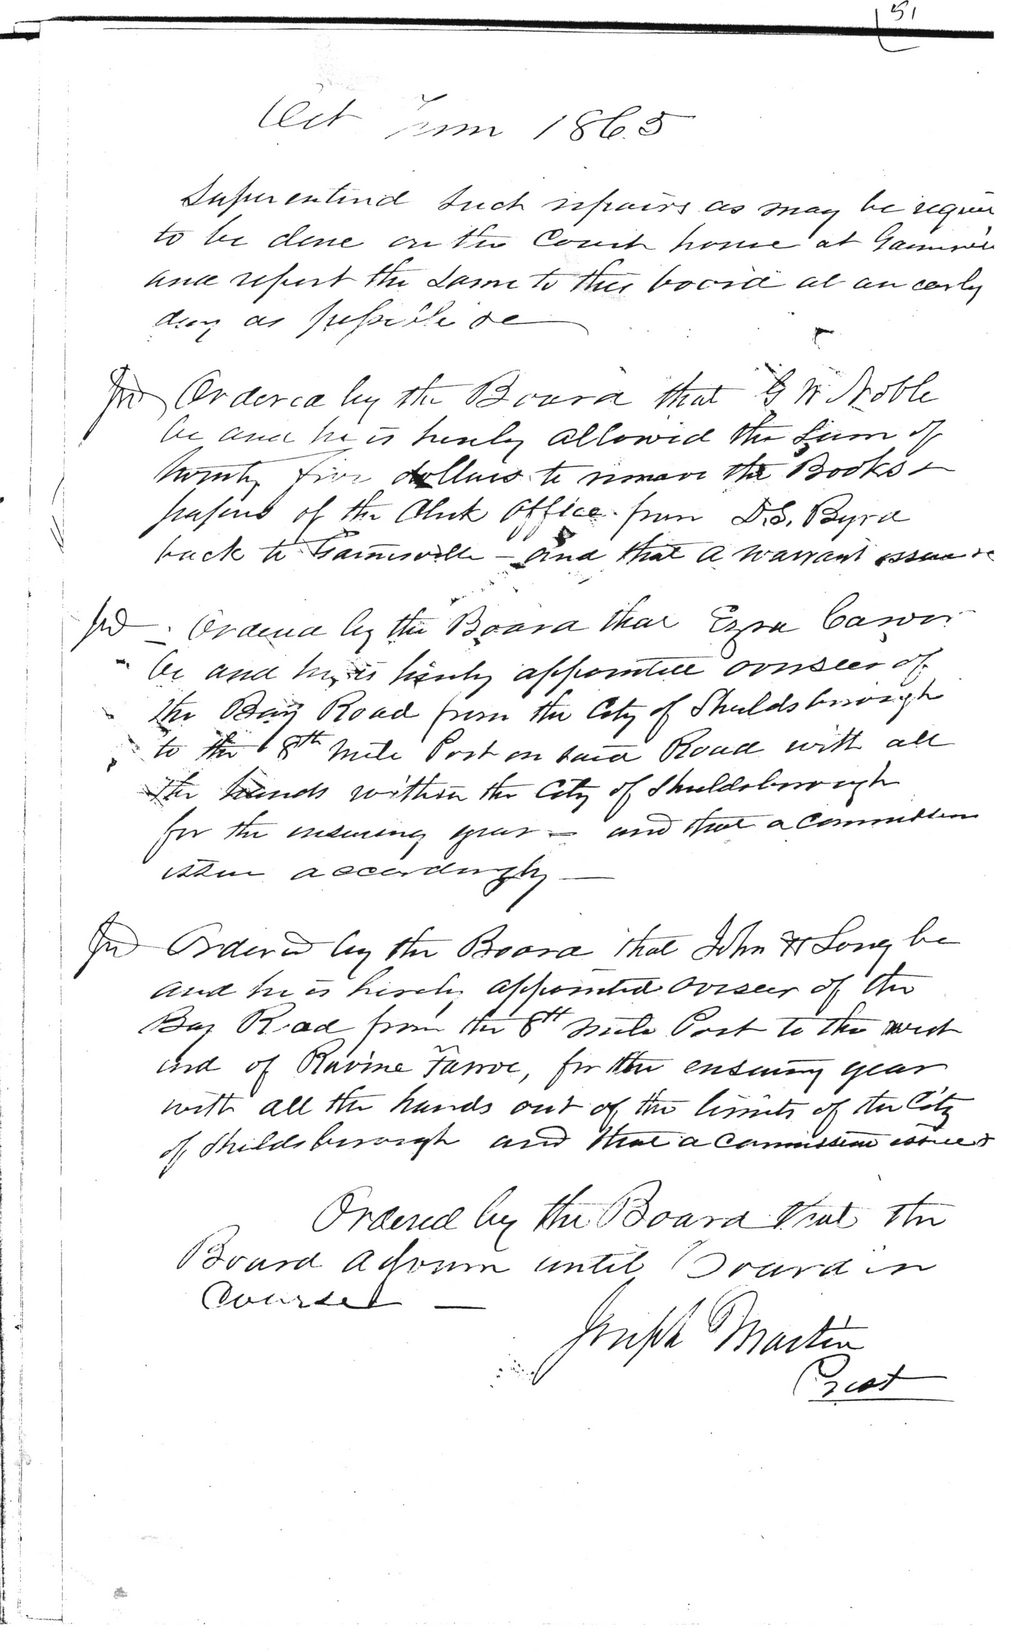 51
Oct Term 1865
Superentend such repairs as may be requir
to be done on the Court house at Gainsvill
and report the same to this board at an early
day as possible &c
Ordered by the Board that G W Noble
be and he is hereby allowed the sum of
twenty five dollars to remove the Books &
papers of the Clerk Office from D.S. Byrd
back to Gainesville - and that a warrant issue &c
Ordered by the Board that Ezra Carver
be and he is hereby appointed overseer of
the Bay Road from the City of Shieldsborough
to the 8th Mile Post on said Road with all
the hands within the City of Shieldsborough
for the ensueing year - and that a commission
issue accordingly —
Ordered by the Board that John H Long be
and he is hereby appointed overseer of the
Bay Road from the 8th Mile Post to the west
end of Ravine Farve, for the ensuing year
with all the hands out of the limits of the City
of Shieldsborough and that a commission issue &
Ordered by the Board that the
Board adjourn until Board in
Course —
Joseph Martin
Prest